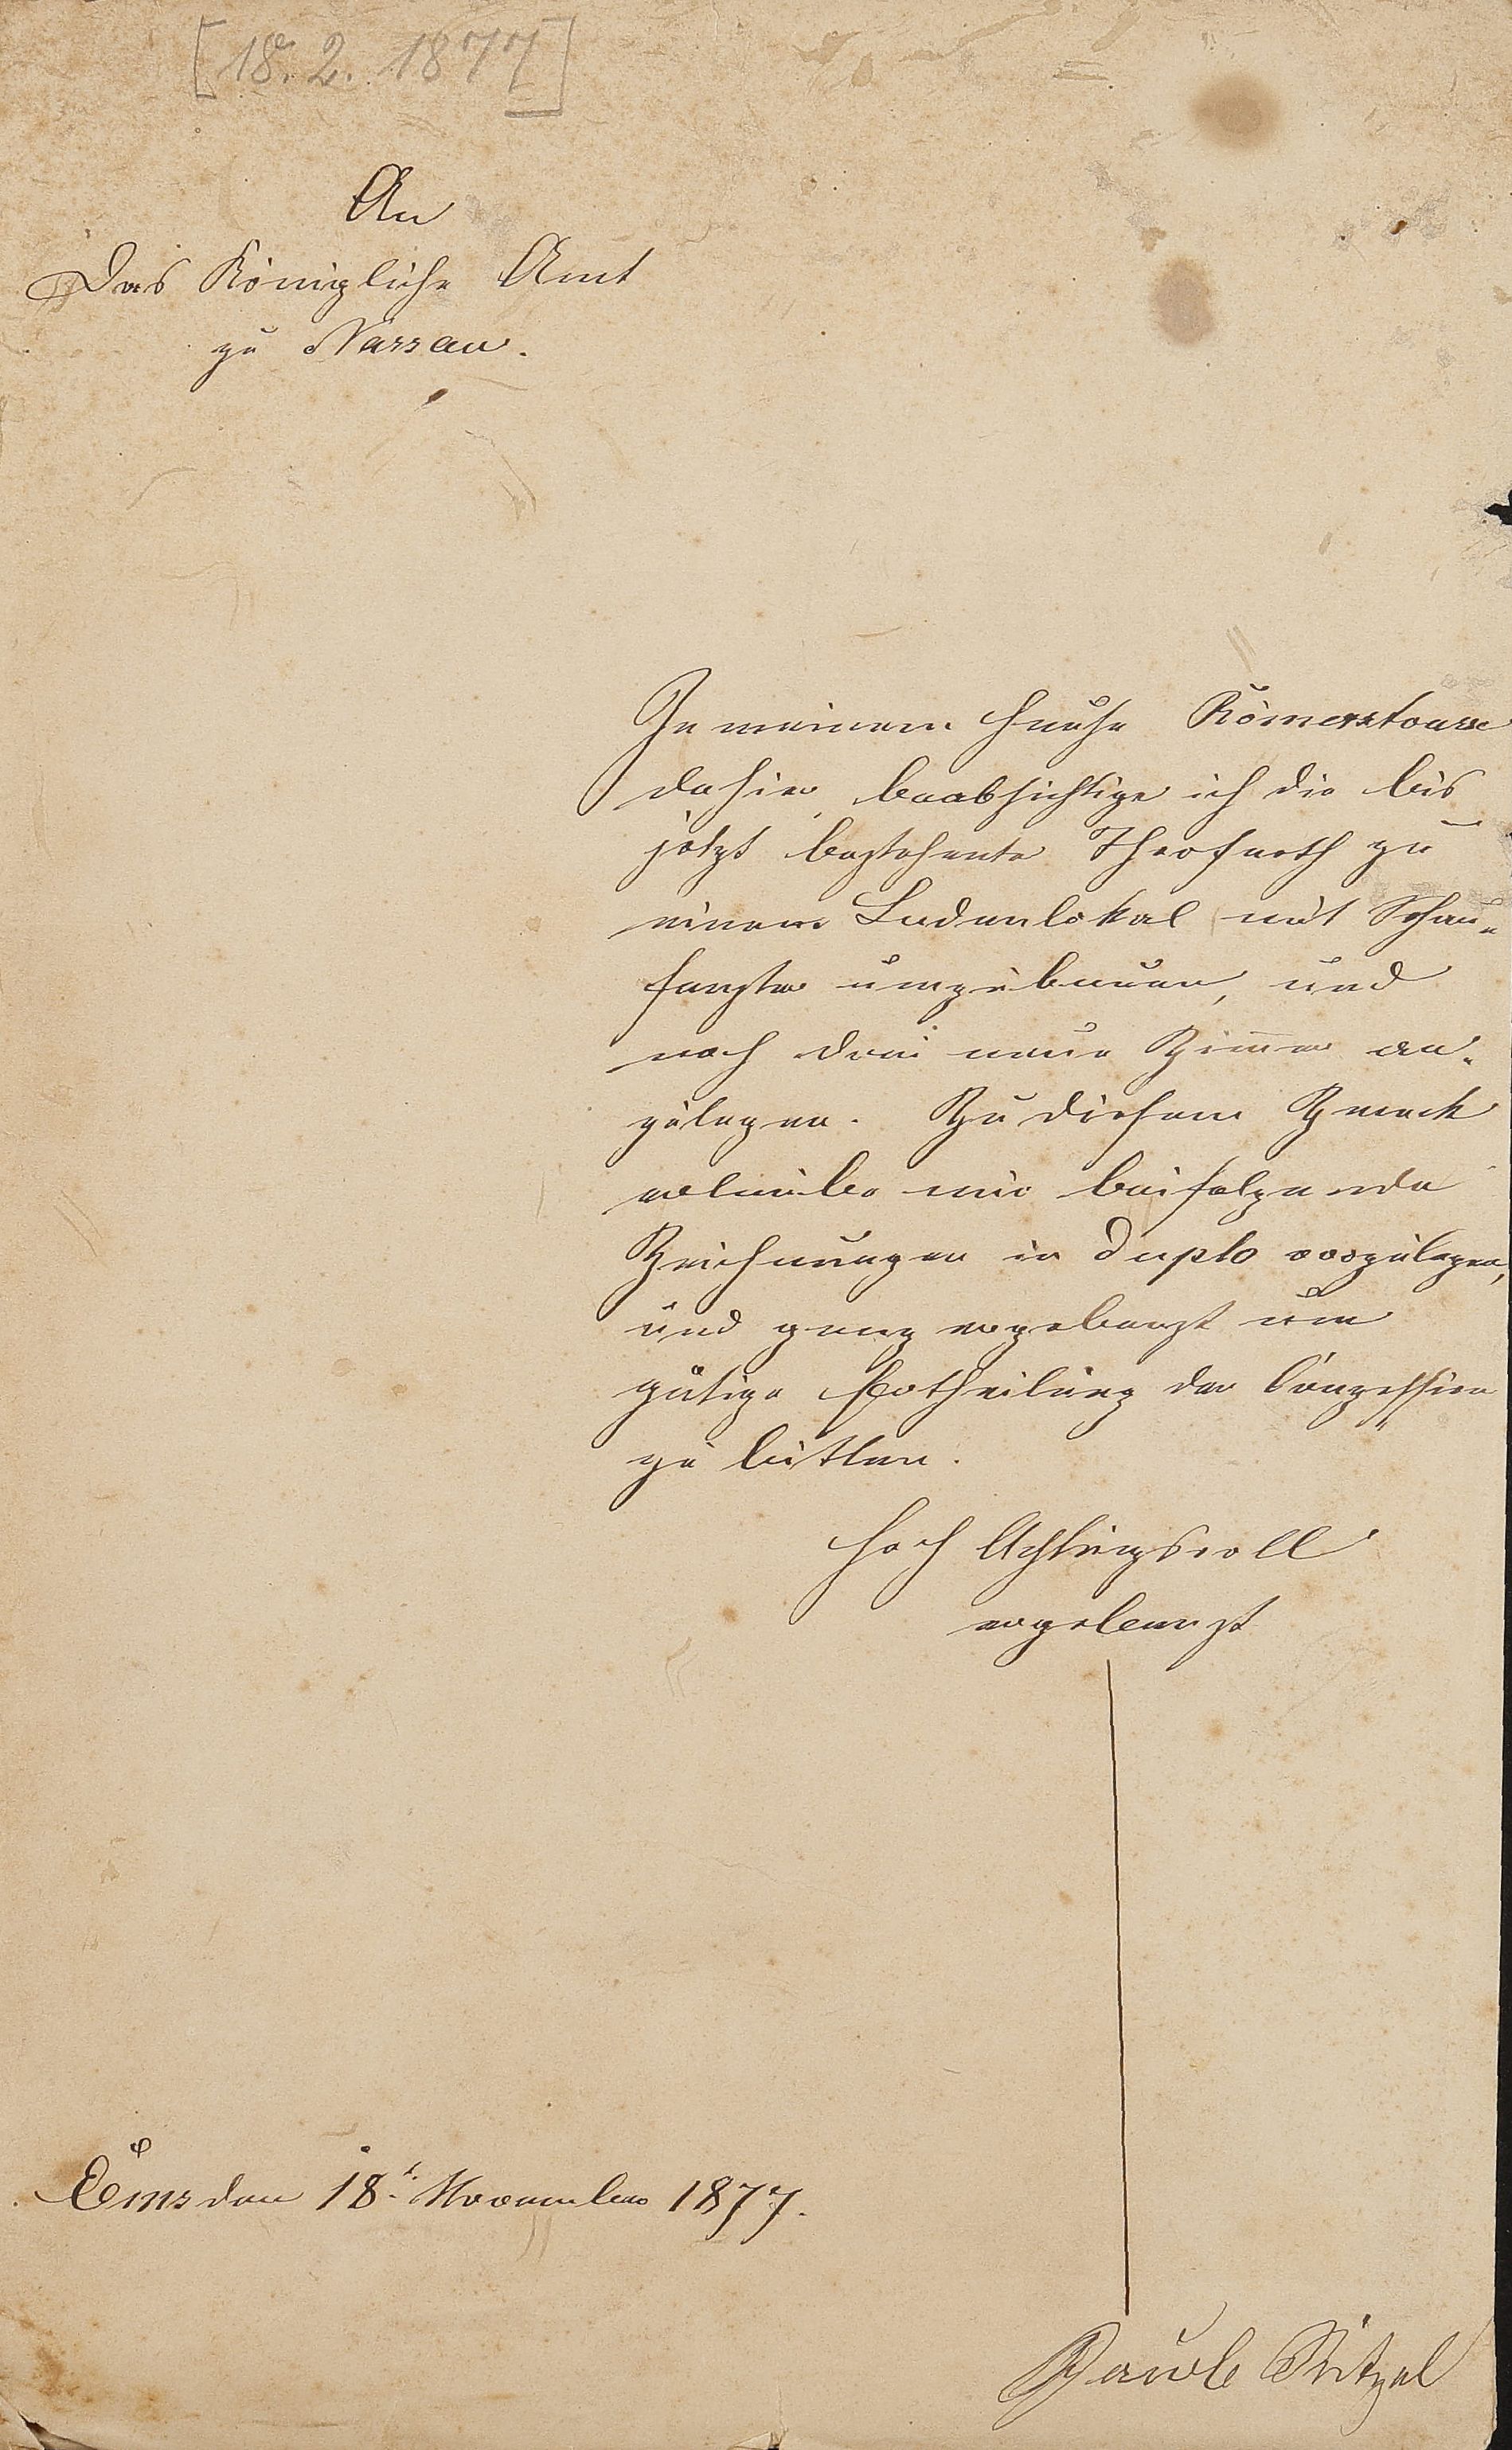 [18. 2. 1877]
An
Das Königliche Amt
zu Nassau.
In meinem Hause Römerstrasse
dahier, beabsichtige ich die bis
jetzt bestehente Thorfarth zu
einem Ladenlokal mit Schau-
fenster umzubauen, und
noch drei neue Zimmer an-
zulegen. Zu diesem Zweck
erlaube mir beifolgende
Zeichnungen in duplo vorzulegen,
und ganz ergebenst um
gütige Ertheilung der Conzession
zu bitten.
Hoch Achtungsvoll
ergebenst
Ems den 18t. November 1877.
Jacob Bitzel